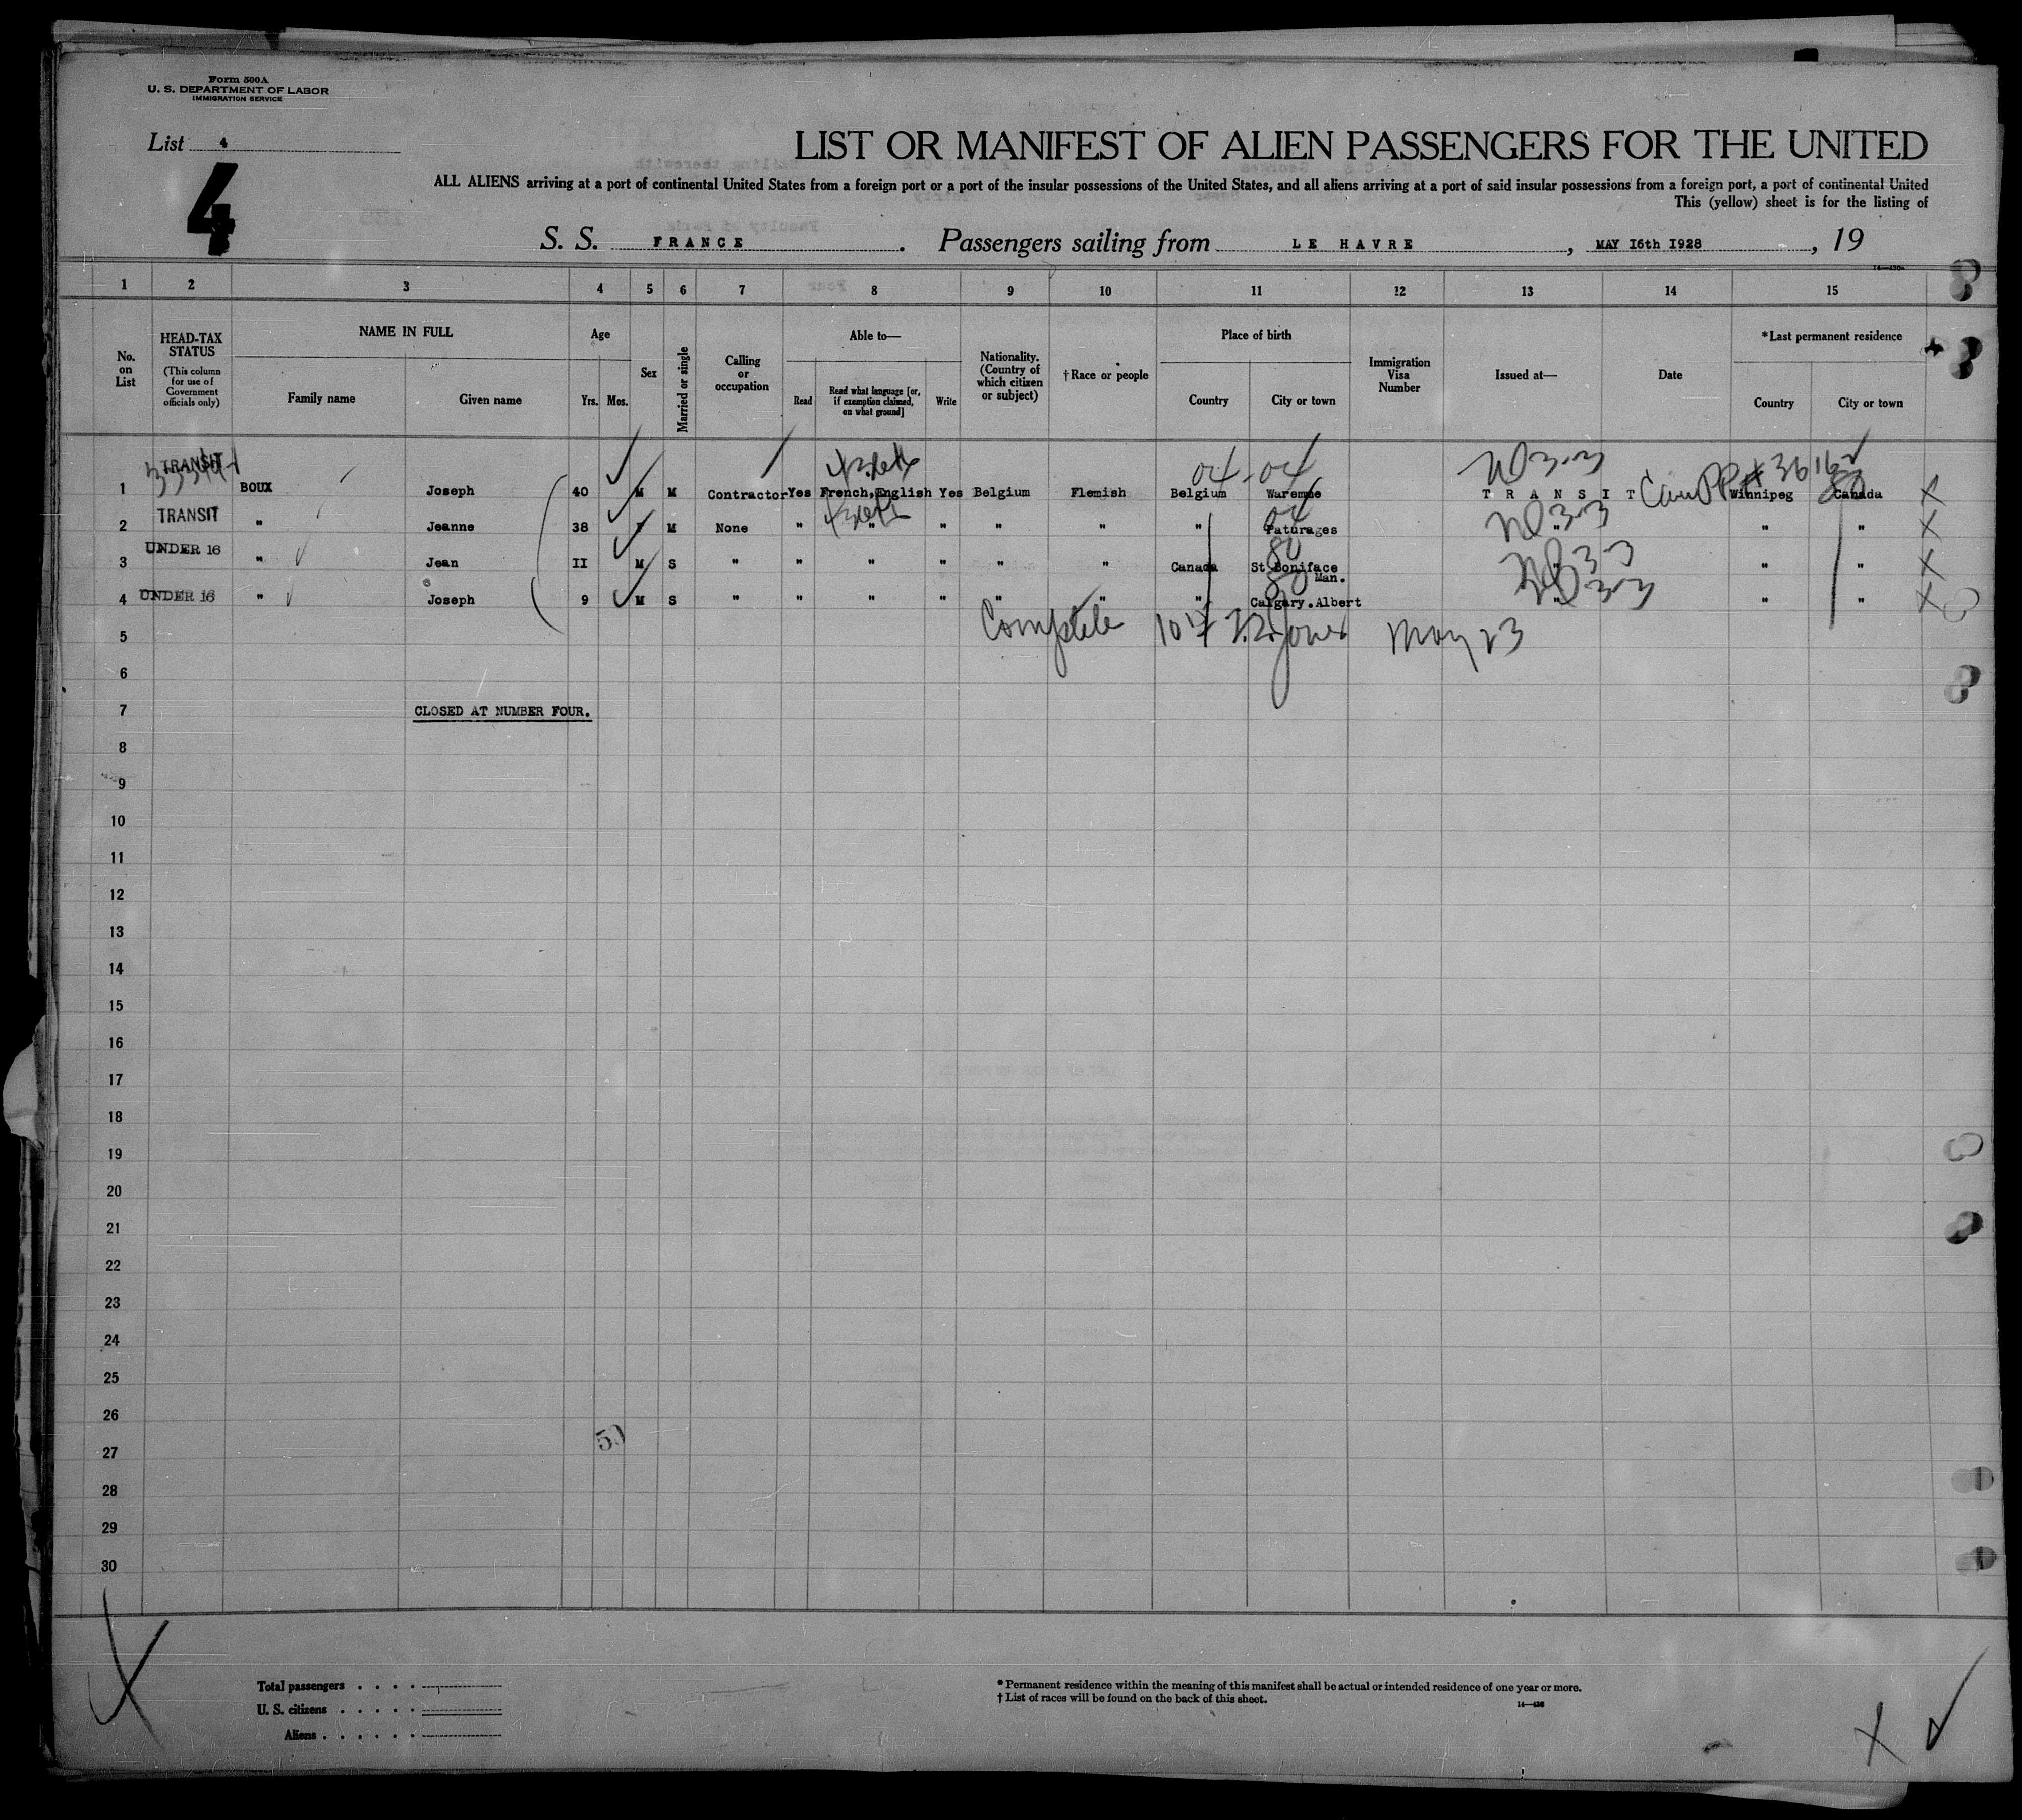 Form 500A
U. S. DEPARTMENT OF LABOR
IMMIGRATION SERVICE
List 4
4
LIST OR MANIFEST OF ALIEN PASSENGERS FOR THE UNITED
ALL ALIENS arriving at a port of continental United States from a foreign port or a port of the insular possessions of the United States, and all aliens arriving at a port of said insular possessions from a foreign port, a port of continental United
This (yellow) sheet is for the listing of
S. S. FRANCE. Passengers sailing from LE HAVRE, MAY 16th 1928, 19
1 2 3 4 5 6 7 8 9 10 11 12 13 14 15
No. on List
HEAD-TAX STATUS (This column for use of Government officials only)
NAME IN FULL
Family name
Given name
Age
Yrs. Mos.
Sex
Married or single
Calling or occupation
Able to—
Read
Read what language [or, if exemption claimed, on what ground]
Write
Nationality. (Country of which citizen or subject)
†Race or people
Place of birth
Country
City or town
Immigration Visa Number
Issued at—
Date
*Last permanent residence
Country
City or town
1 TRANSIT BOUX Joseph 40 M M Contractor Yes French,English Yes Belgium Flemish Belgium Waremme TRANSIT Winnipeg Canada
2 TRANSIT " Jeanne 38 F M None " " " " " " Paturages " " "
3 UNDER 16 " Jean II M S " " " " " " Canada St Boniface Man. " " "
4 UNDER 16 " Joseph 9 M S " " " " " " " Calgary.Albert " " "
5 Complete May 23
6
7 CLOSED AT NUMBER FOUR.
8
9
10
11
12
13
14
15
16
17
18
19
20
21
22
23
24
25
26
27
28
29
30
Total passengers . . . .
U. S. citizens . . . . .
Aliens . . . . . .
* Permanent residence within the meaning of this manifest shall be actual or intended residence of one year or more.
† List of races will be found on the back of this sheet.
14—430